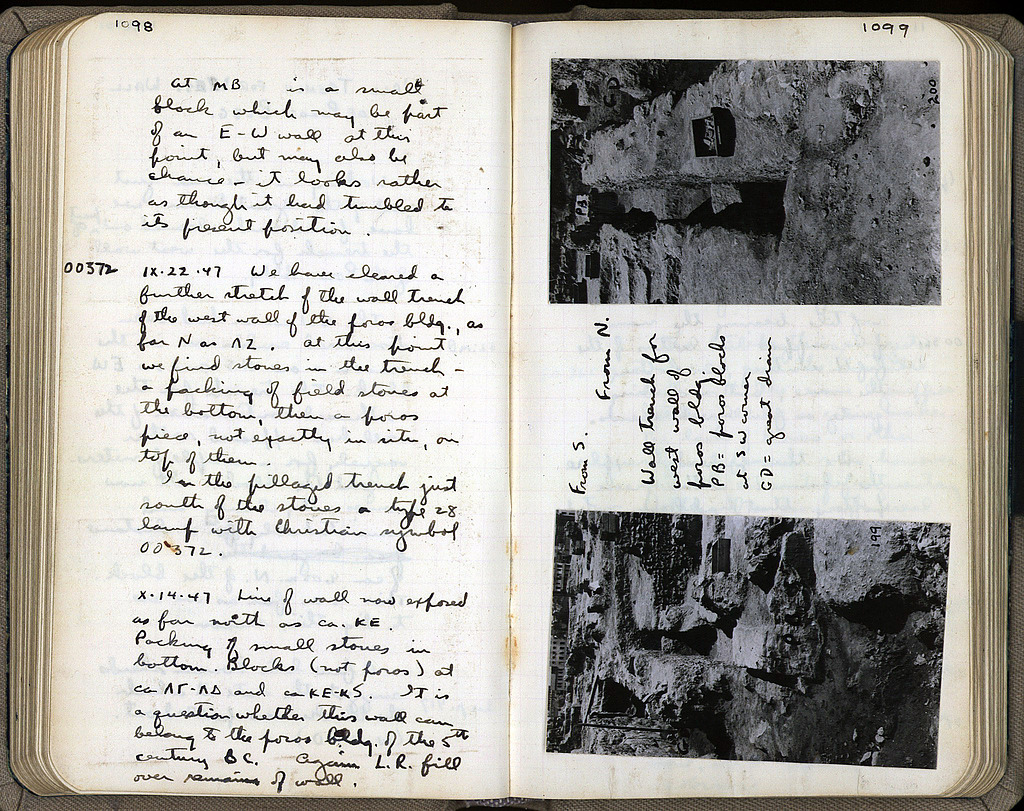 1098
at MB is a small
block which may be part
of an E-W wall at this
point, but may also be
chance - it looks rather
as though it had tumbled to
its present position.
OO372 IX·22·47 We have cleared a
further stretch of the wall trench
of the west wall of the poros bldg., as
far N as ΛΖ. At this point
we find stones in the trench -
a packing of field stones at
the bottom, then a poros
piece, not exactly in situ, on
top of them.
In the pillaged trench just
south of the stones a type 28
lamp with Christian symbol
OO372.
X·14·47 Line of wall now exposed
as far north as ca. KE.
Packing of small stones in
bottom. Blocks (not poros) at
ca ΛΓ-ΛΔ and ca KE-KS. It is
a question whether this wall can
belong to the poros bldg. of the 5th
century BC. Again L.R. fill
over remains of wall.
1099
GD
200
PB
From S. From N.
Wall trench for
west wall of
poros bldg.
PB = poros blocks
at SW corner
GD = great drain
199